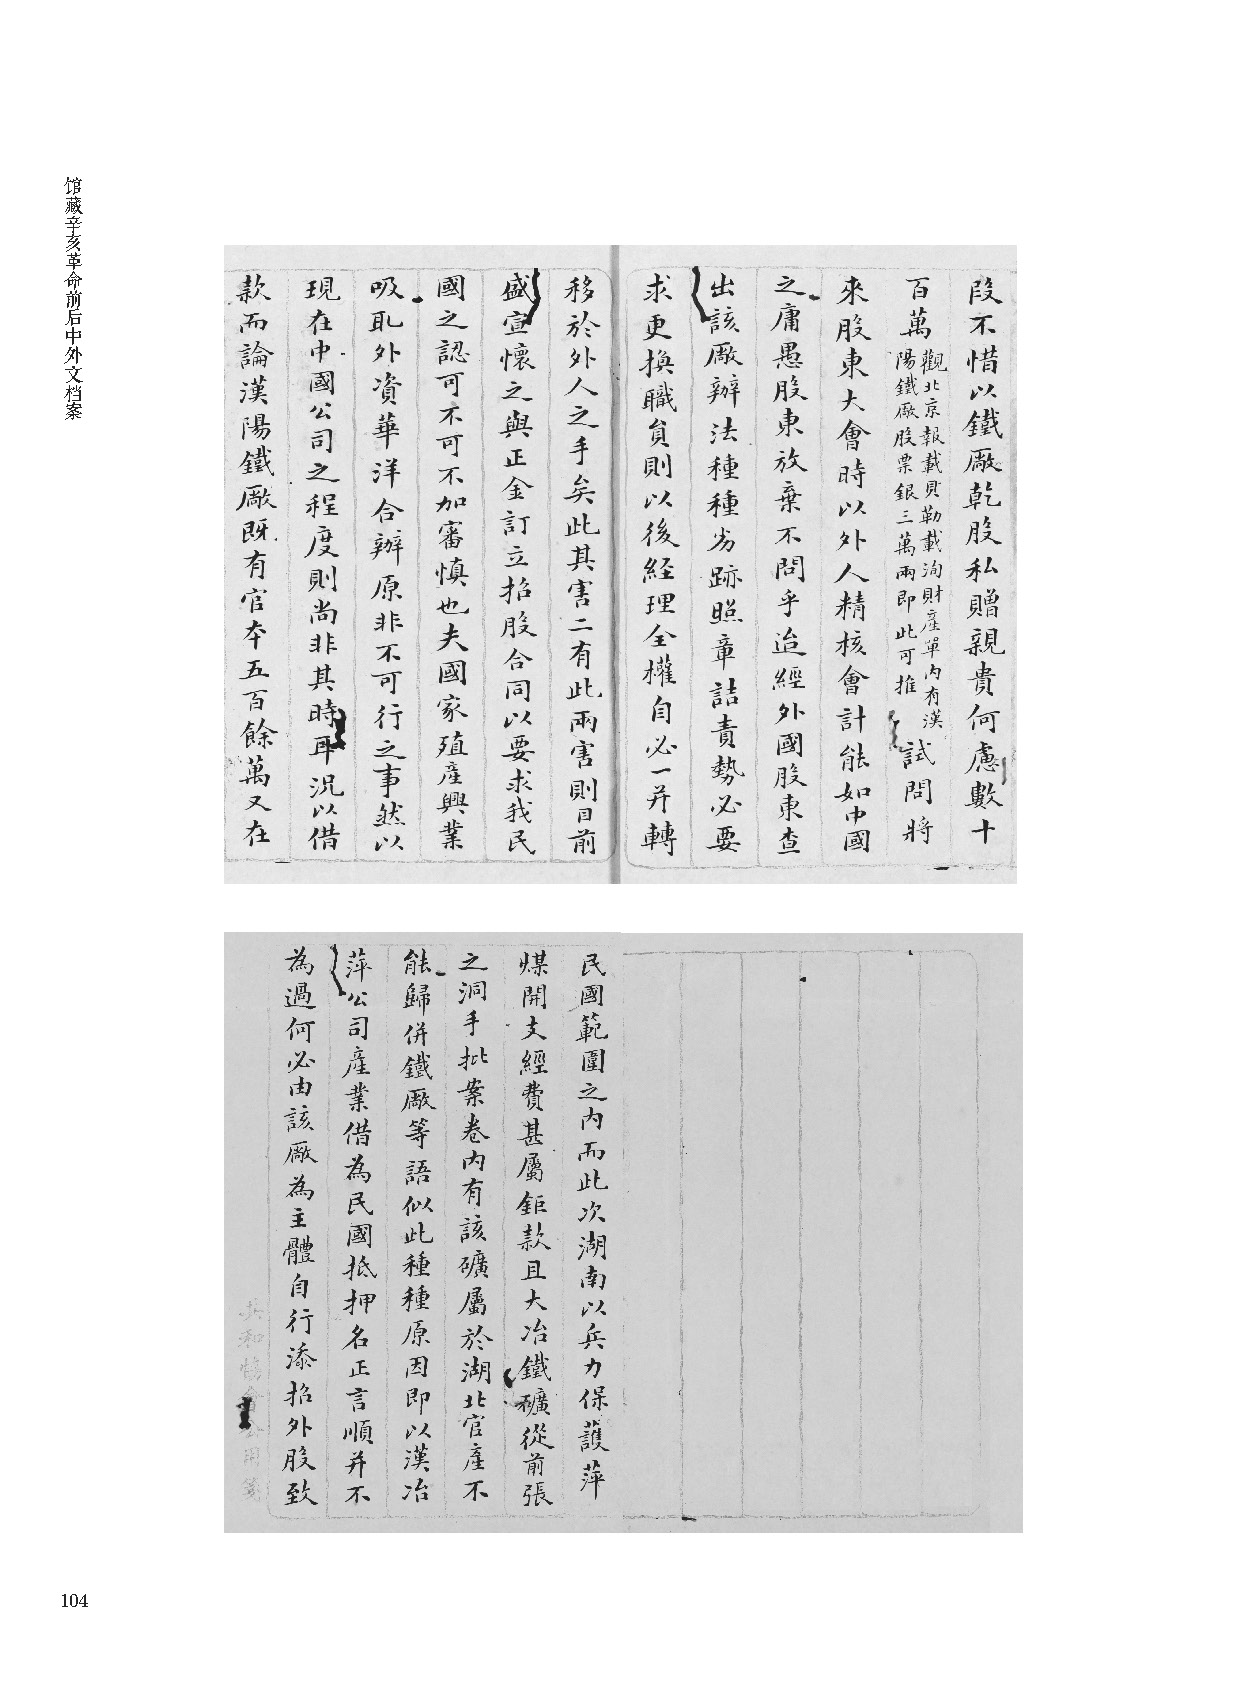 馆藏辛亥革命前后中外文档案
段不惜以鐵廠乾股私贈親貴何慮數十
百萬
觀北京報載貝勒載洵財產單內有漢
陽鐵廠股票銀三萬兩即此可推
試問將
來股東大會時以外人精核會計能如中國
之庸愚股東放棄不問乎迨經外國股東查
出該廠辦法種種劣跡照章詰責勢必要
求更換職員則以後経理全權自必一并轉
移於外人之手矣此其害二有此兩害則目前
盛宣懷之與正金訂立招股合同以要求我民
國之認可不可不加審慎也夫國家殖產興業
吸耴外資華洋合辦原非不可行之事然以
現在中國公司之程度則尚非其時耳況以借
款而論漢陽鐵廠既有官本五百餘萬又在
民國範圍之內而此次湖南以兵力保護萍
煤開支經費甚屬鉅款且大冶鐵礦從前張
之洞手批案卷內有該礦屬於湖北官產不
能歸併鐵廠等語似此種種原因即以漢冶
萍公司產業借為民國抵押名正言順并不
為過何必由該廠為主體自行添招外股致
共和
用箋
104